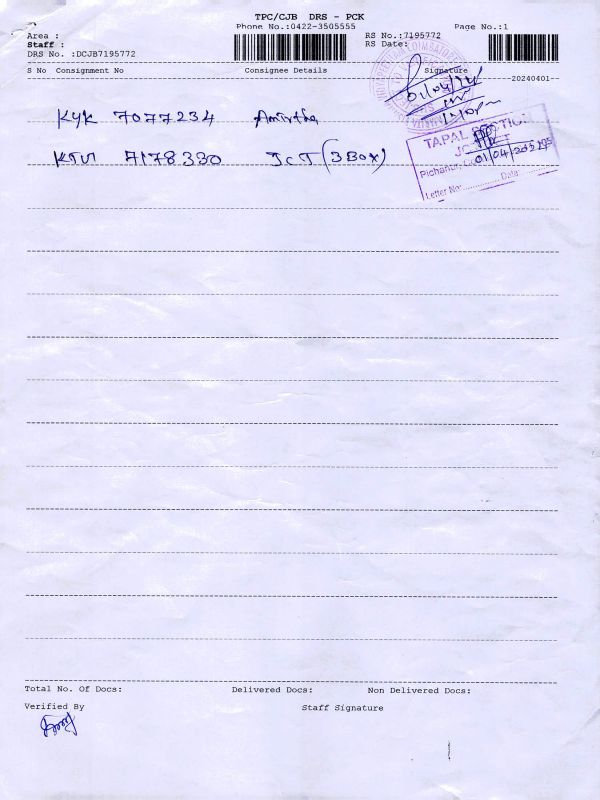 TPC/CJB DRS - PCK
Phone No.:0422-3505555
Page No.:1
Area :
RS No.:7195772
Staff :
RS Date:
DRS No. :DCJB7195772
S No Consignment No Consignee Details Signature
20240401--
01/04/24
KYK 7077234 Amirtha
1.10pm
TAPAL SECTION
KTM 7178330 JCT (3 Box)
01/04/2024
Pichanur,
Letter No:.............. Date:............
Total No. Of Docs: Delivered Docs: Non Delivered Docs:
Verified By Staff Signature